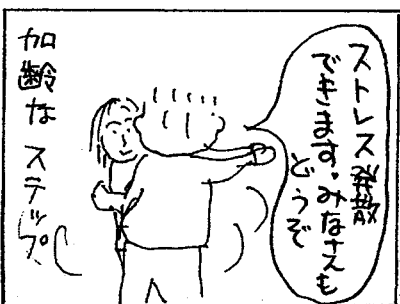 ストレス発散
できます。みなさんも
どうぞ
加齢な ステップ